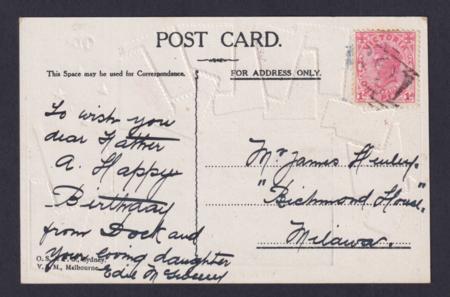 POST CARD.
This Space may be used for Correspondence.
FOR ADDRESS ONLY.
VICTORIA
To wish you
dear Father
A. Happy
Birthday
from Dock and
Your loving daughter
Edie
Mr James Henley
"Richmond House"
Milawa.
Sydney,
V. S. M., Melbourne